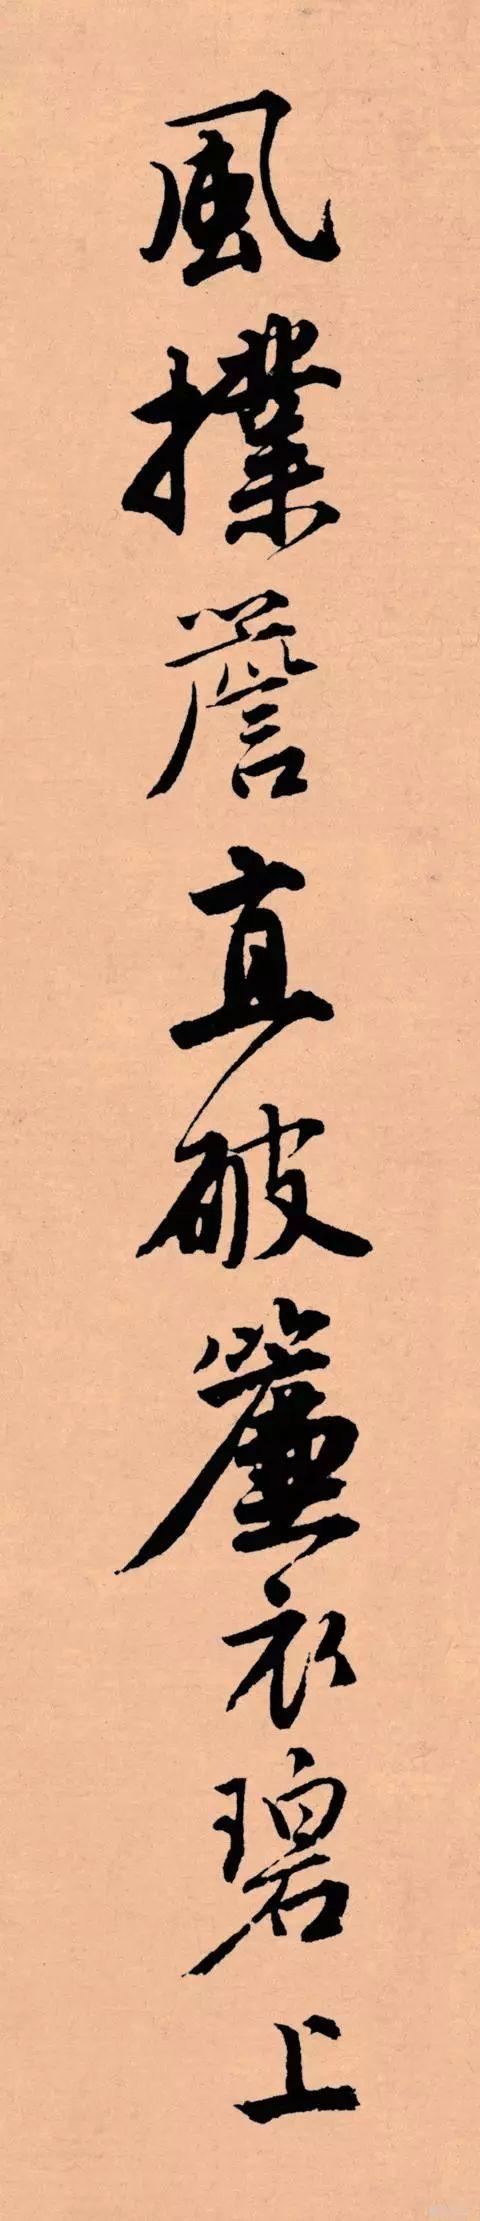 風撲簷直破簾衣碧上